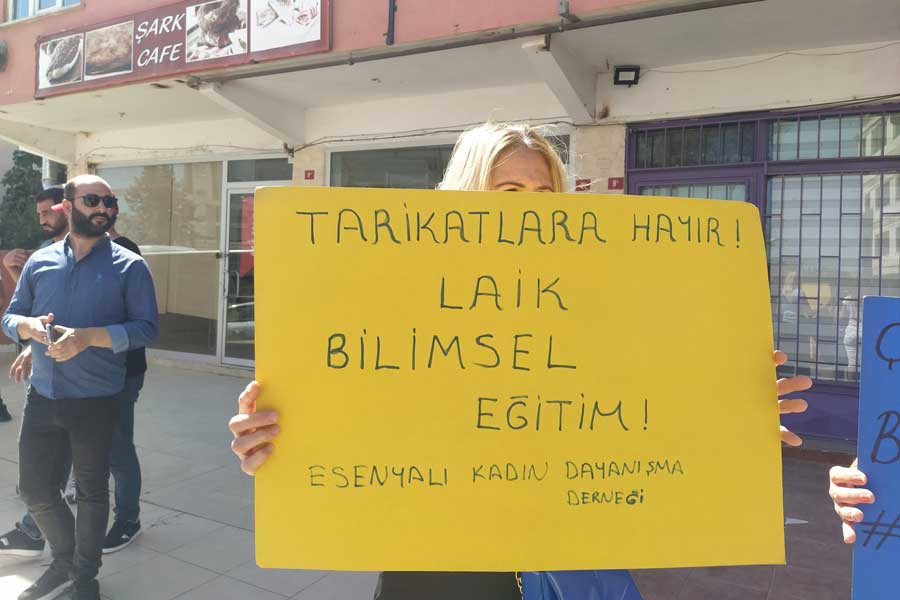 ŞARK
CAFE
TARİKATLARA HAYIR!
LAİK
BİLİMSEL
EĞİTİM!
ESENYALI KADIN DAYANIŞMA
DERNEĞİ
#